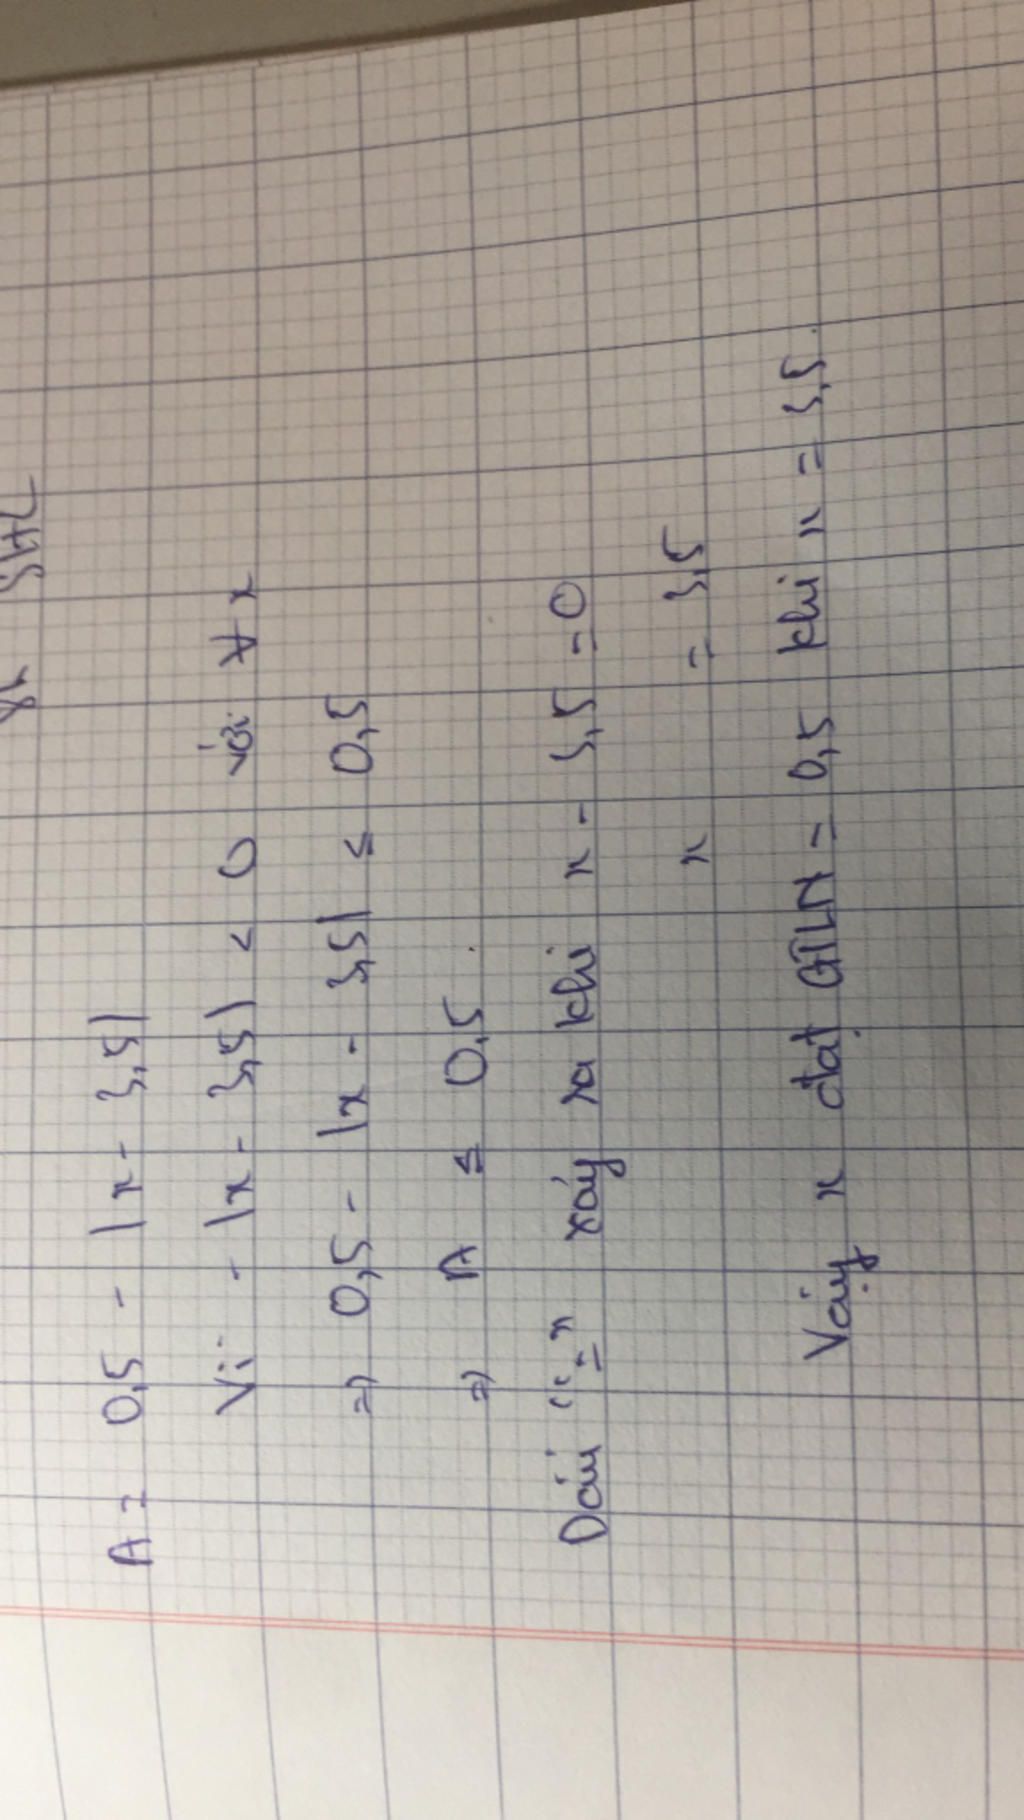 A = 0,5 - |x - 3,5|
Vì - |x - 3,5| < 0 với ∀ x
=) 0,5 - |x - 3,5| ≤ 0,5
=) A ≤ 0,5.
Dấu "=" xảy ra khi x - 3,5 = 0
x = 3,5
Vậy x đạt GTLN = 0,5 khi x = 3,5.